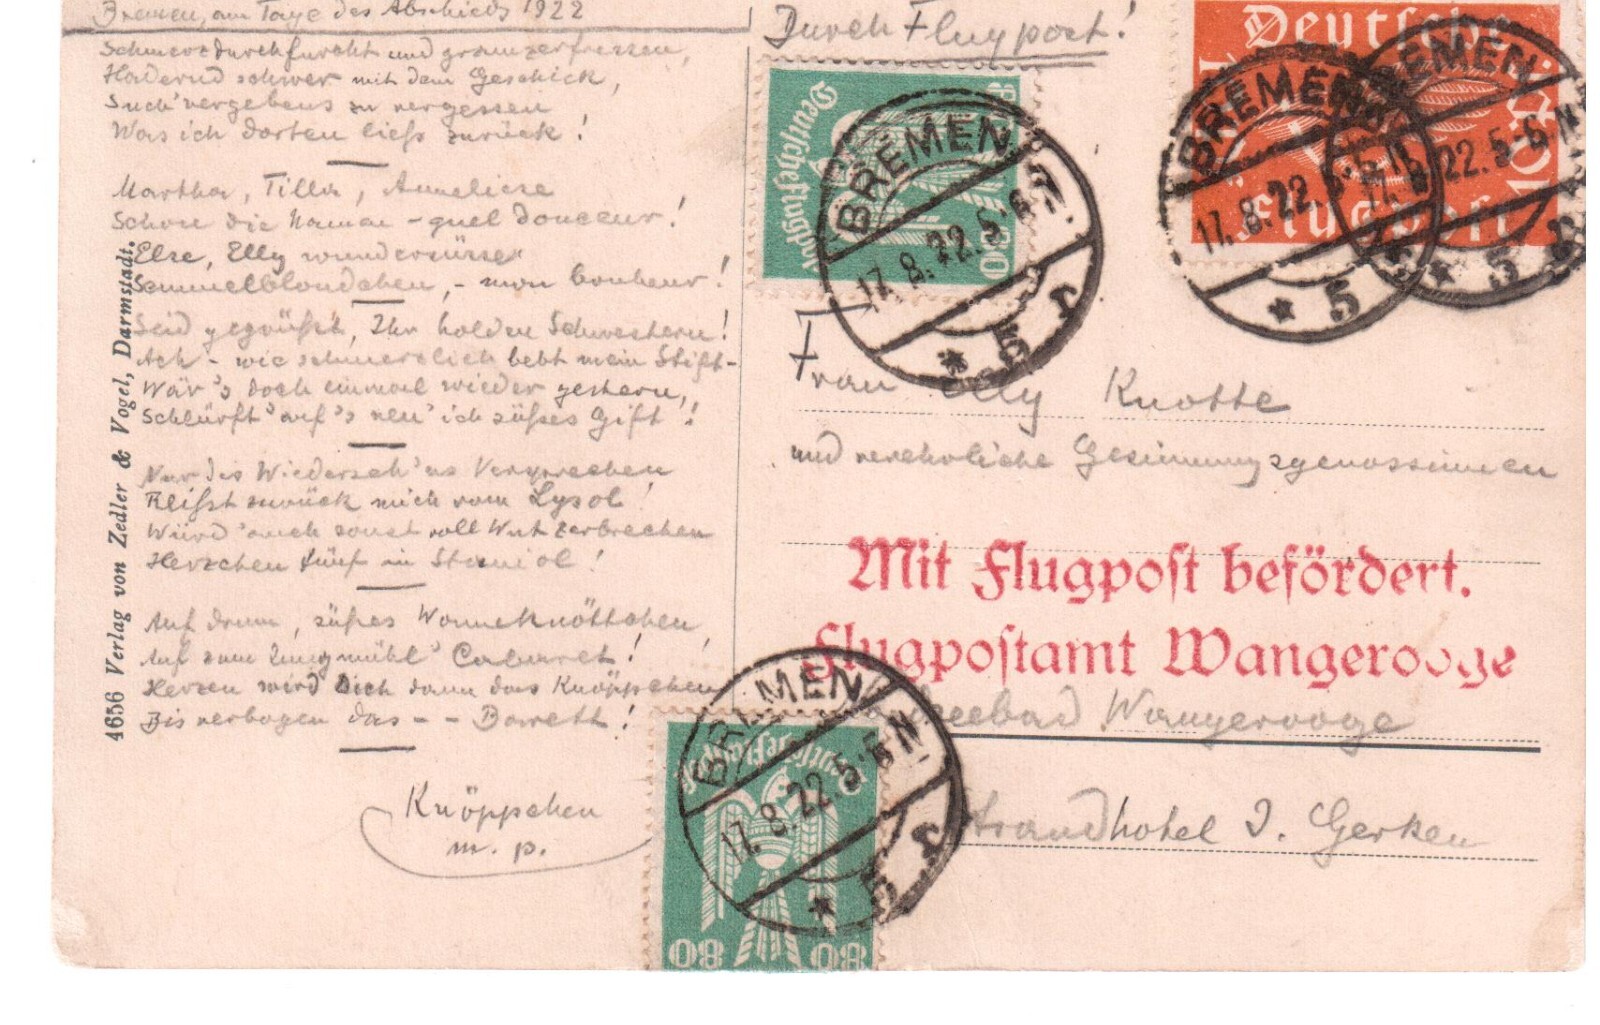 Bremen, am Tage des Abschieds 1922
Schmerzdurchfurcht und gramzerfressen,
Hadernd schwer mit dem Geschick,
Such' vergebens zu vergessen
Was ich dorten liess zurück!
Martha, Tilla, Anneliese
Schon die Namen - quel douceur!
Else, Elly wundersüsse
Semmelblondchen, - mon bonheur!
Seid gegrüßt, Ihr holden Schwestern!
Ach - wie schmerzlich bebt mein Stift -
Wär's doch einmal wieder gestern,
Schlürft' auf's neu' ich süßes Gift!
Nur des Wiederseh'ns Versprechen
Reißt zurück mich vom Lysol!
Würd' auch sonst voll Wut zerbrechen
Herzchen fünf in Staniol!
Auf drum, süßes Wonneknöttchen,
Auf zum Cabaret!
Herzen wird Dich dann das Knöppchen
Bis verbogen das - - !
Knöppchen
m. p.
4656 Verlag von Zedler & Vogel, Darmstadt.
Durch Flugpost!
Deutsche Flugpost
80 80
BREMEN
17.8.22.5-6 N
* 5
Deutsche
Flugpost
BREMEN
17.8.22.5-6 N
* 5
BREMEN
22.5-6 N
* 5
Frau Elly Knotte
und verehrliche Gesinnungsgenossinnen
Mit Flugpost befördert.
Flugpostamt Wangerooge
Seebad Wangerooge
Strandhotel J. Gerken
Deutsche Flugpost
80 80
BREMEN
17.8.22.5-6 N
* 5